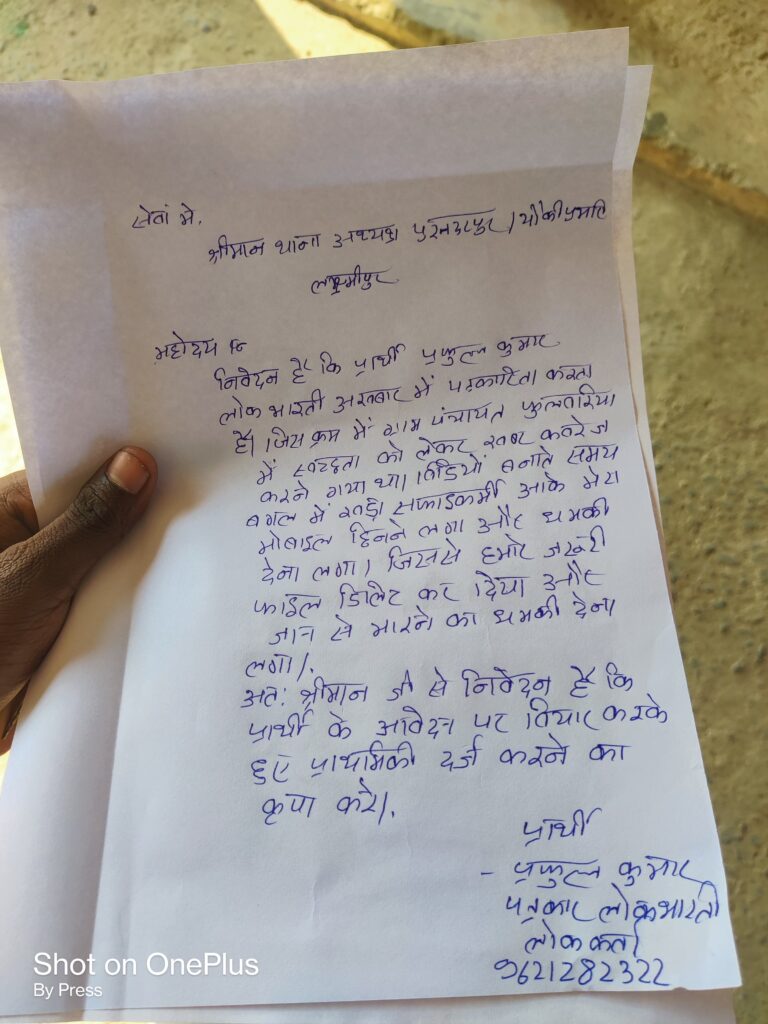 सेवां मे,
श्रीमान थाना अध्यक्ष पुरन्दरपुर / चौकी प्रभारी
लक्ष्मीपुर
महोदय
निवेदन है कि प्रार्थी प्रफुल्ल कुमार
लोक भारती अखबार में पत्रकारिता करता
है। जिस क्रम में ग्राम पंचायत फुलवरिया
में स्वच्छता को लेकर खबर कवरेज
करने गया था। विडियों बनाते समय
बगल में खड़ा सफाइकर्मी आके मेरा
मोबाइल छिनने लगा और धमकी
देना लगा। जिससे हमारे जरूरी
फाइल डिलेट कर दिया और
जान से मारने का धमकी देना
लगा।.
अत: श्रीमान जी से निवेदन है कि
प्रार्थी के आवेदन पर विचार करके
हुए प्राथमिकी दर्ज करने का
कृपा करे।.
प्रार्थी
- प्रफुल्ल कुमार
पत्रकार लोकभारती
लोककर्ता
9621282322
Shot on OnePlus
By Press